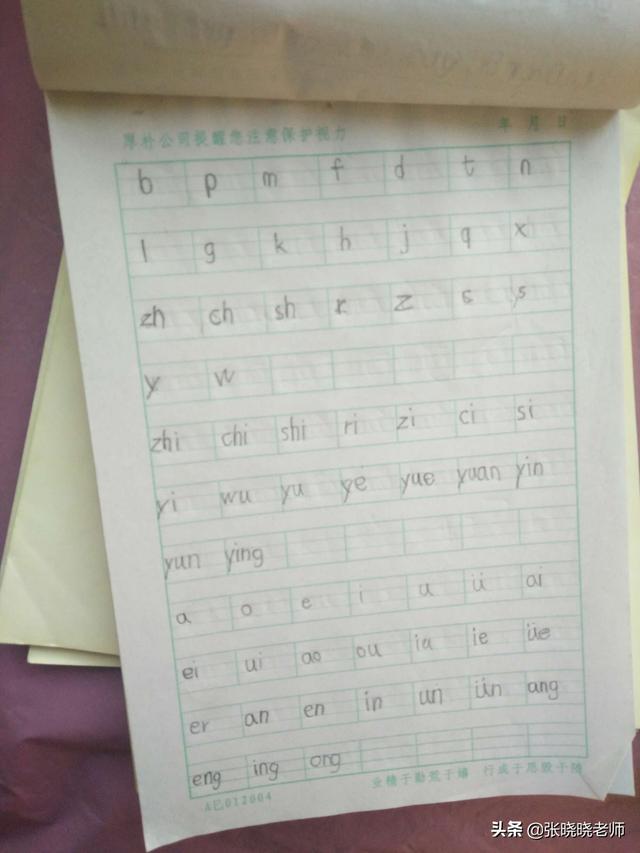 厚朴公司提醒您注意保护视力 年 月 日
b p m f d t n
l g k h j q x
zh ch sh r z s s
y w
zhi chi shi ri zi ci si
yi wu yu ye yue yuan yin
yun ying
a o e i u ü ai
ei ui ao ou iu ie üe
er an en in un ün ang
eng ing ong
业精于勤荒于嬉 行成于思毁于随
A已012004
头条 @张晓晓老师